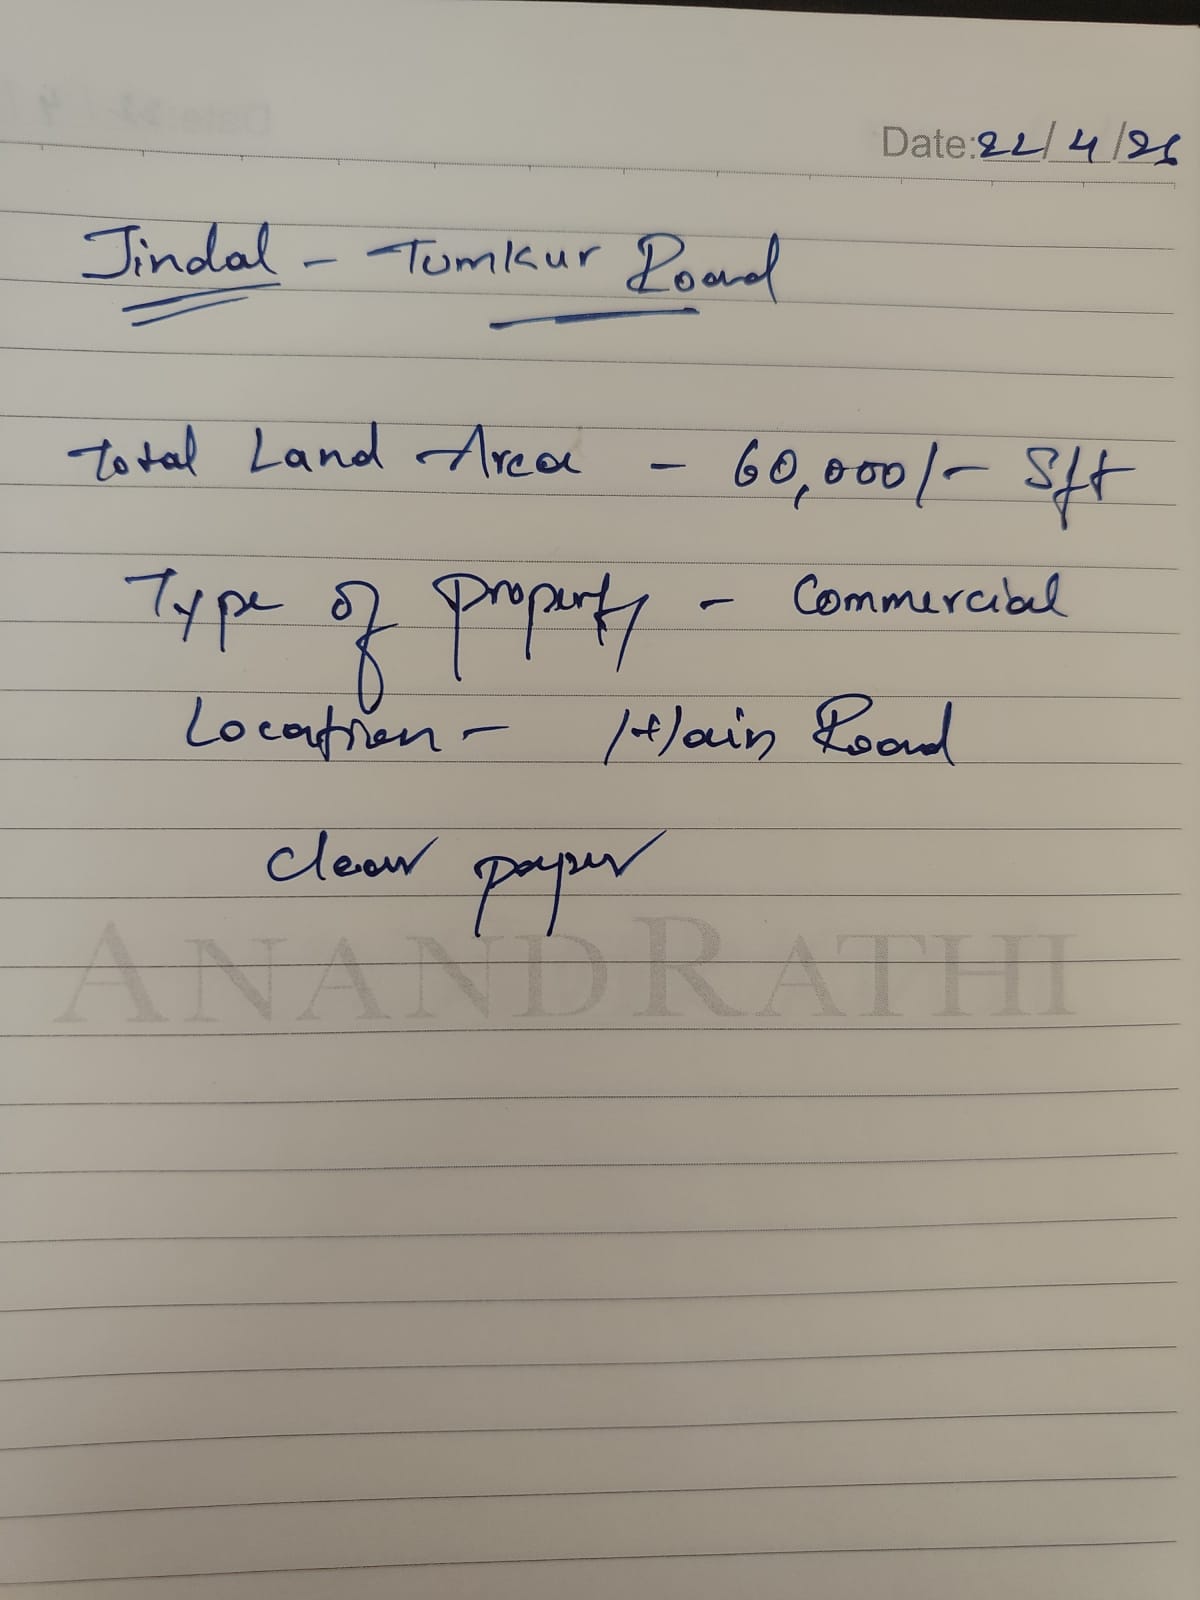 Date: 22/4/26
Jindal - Tumkur Road
Total Land Area - 60,000/- Sft
Type of property - Commercial
Location - Main Road
Clear paper
ANANDRATHI